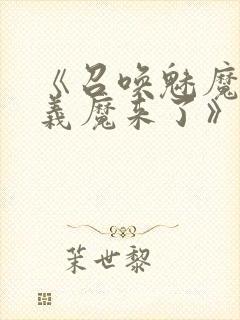 《召唤魅魔
義魔来了》
茉世黎